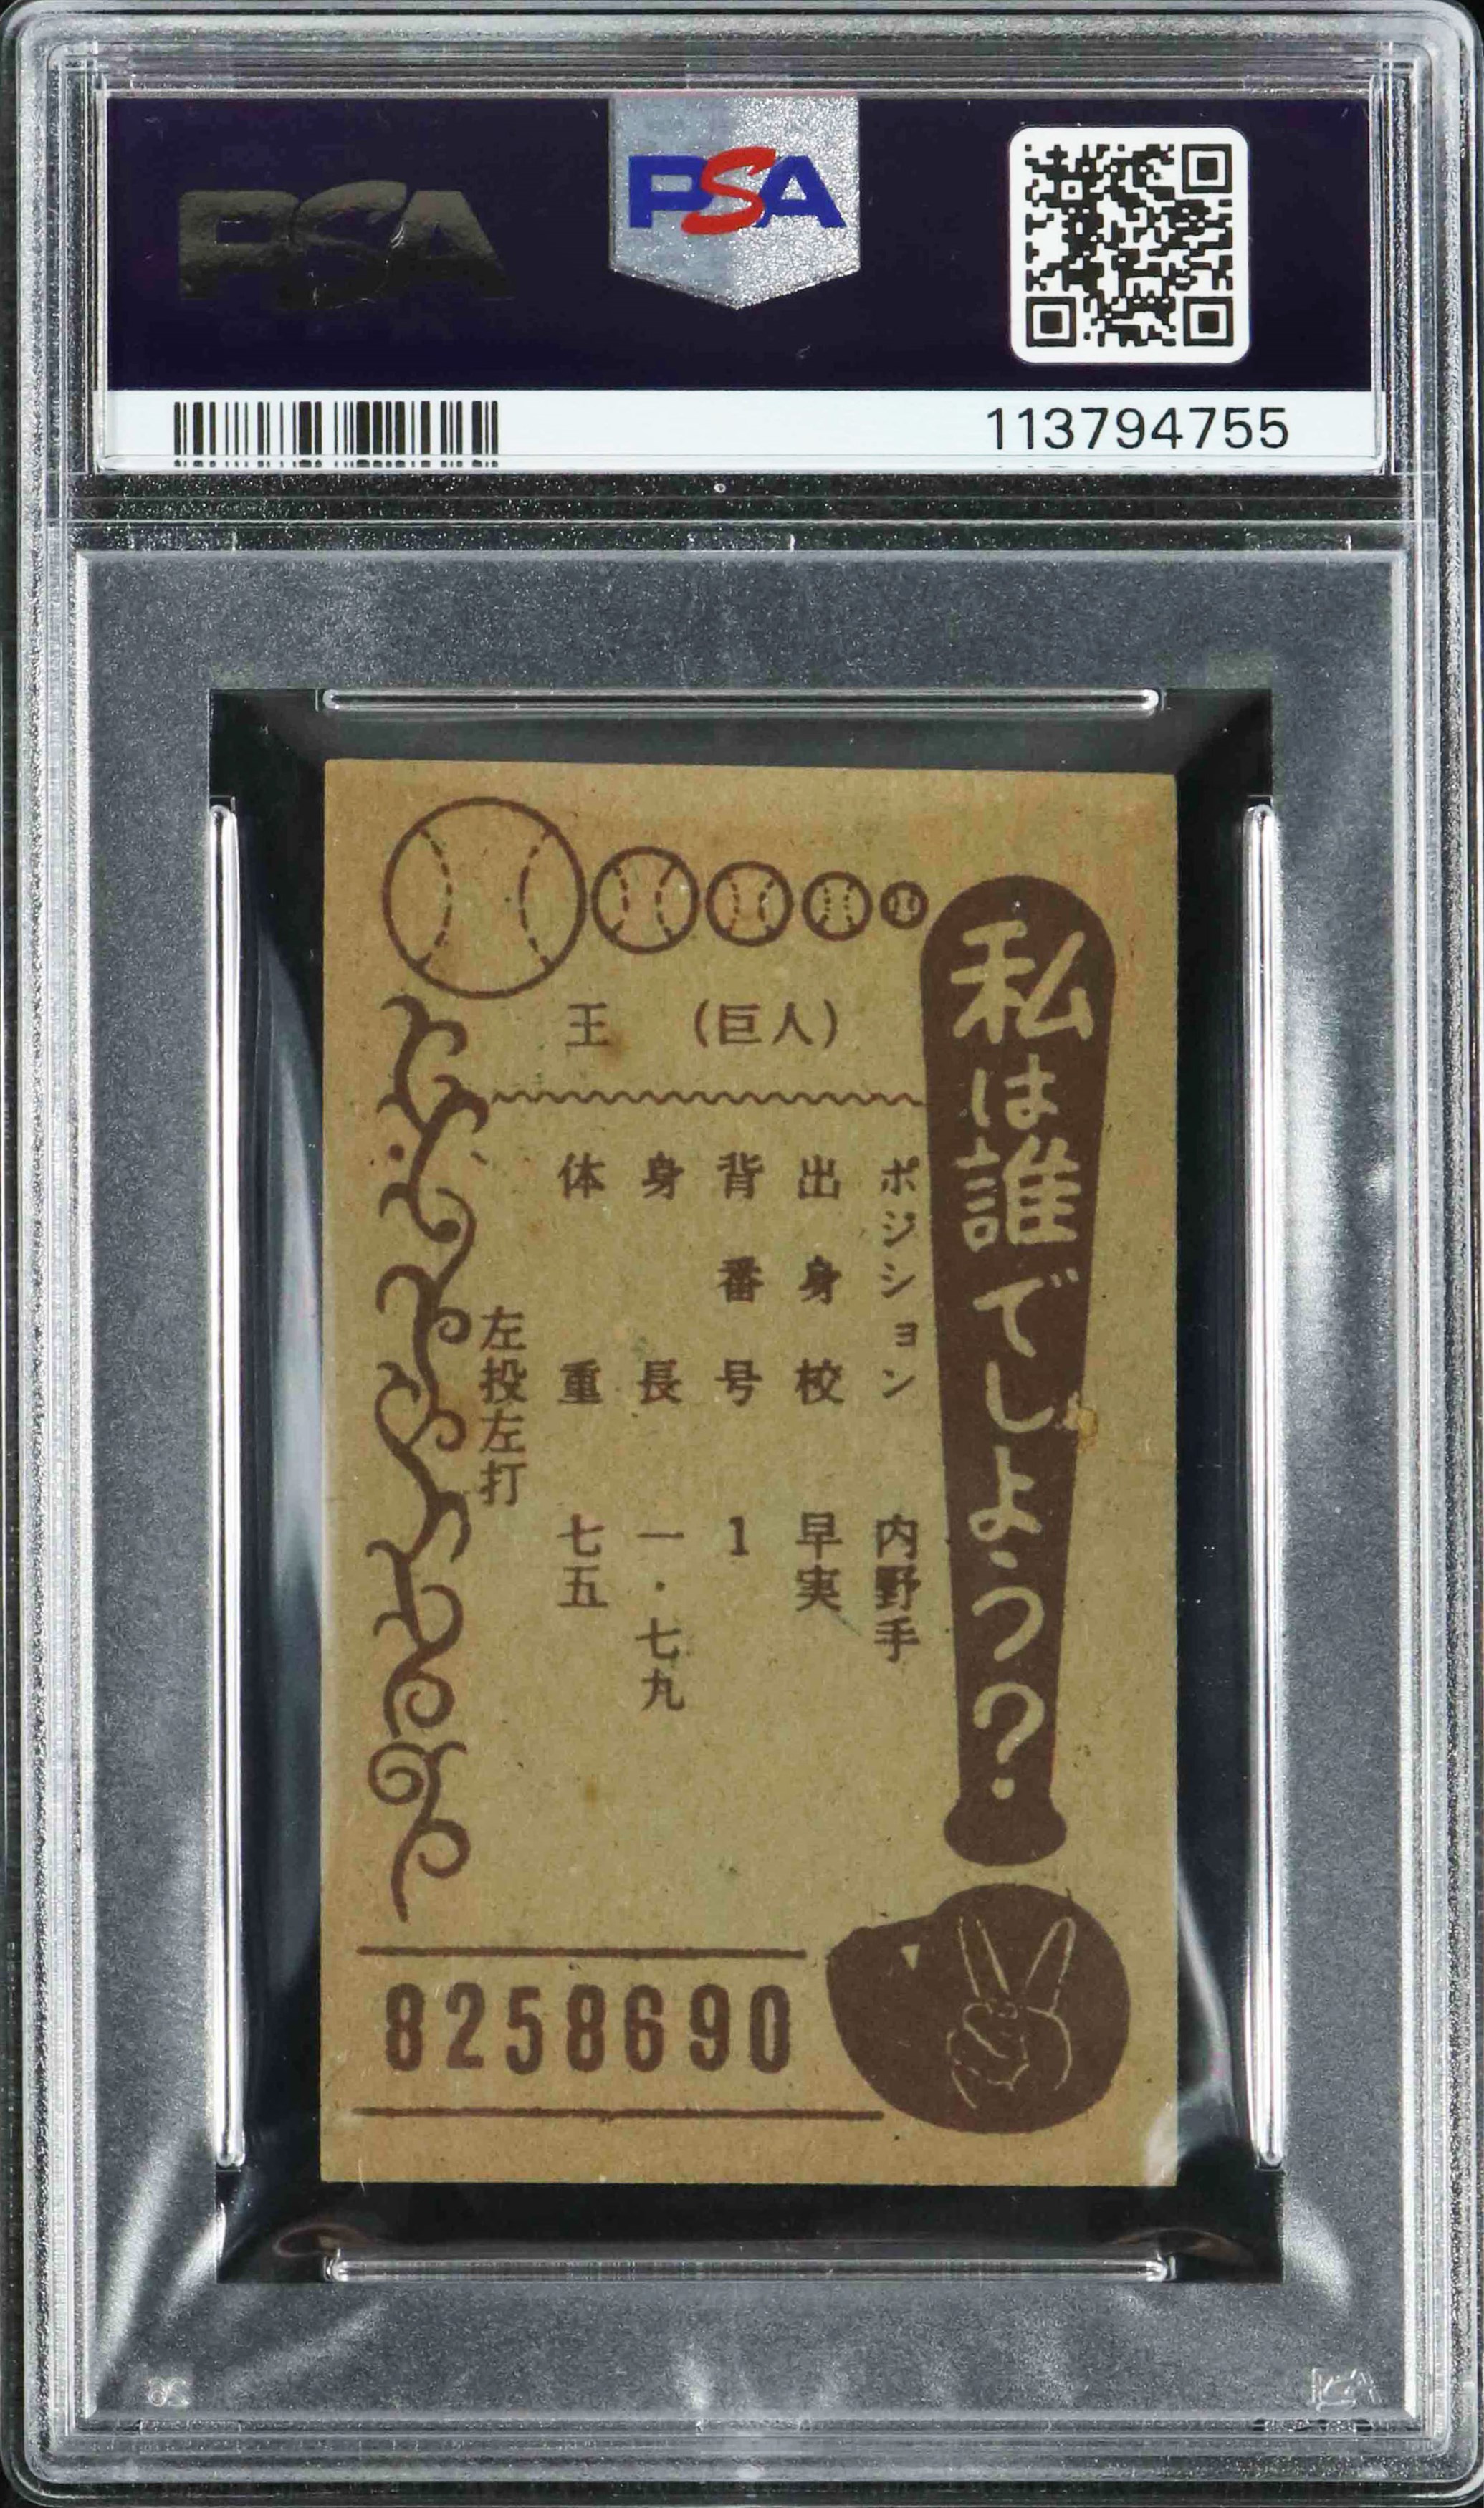 PSA
PSA
113794755
私は誰でしょう?
王 (巨人)
ポジション 内野手
出身校 早実
背番号 1
身長 一・七九
体重 七五
左投左打
8258690